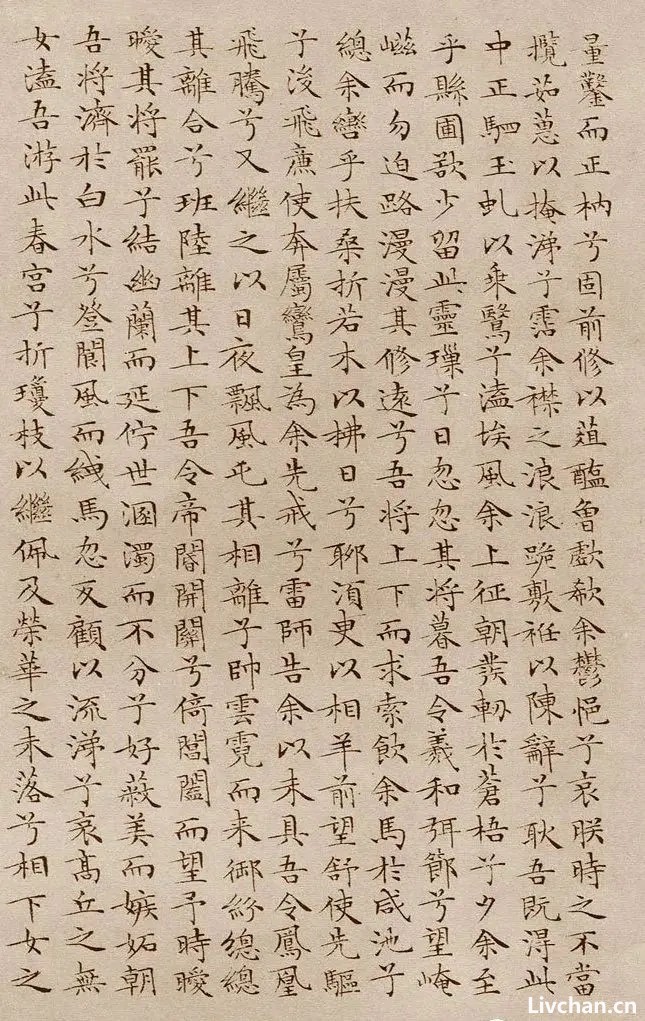 量鑿而正枘兮固前修以葅醢曾歔欷余鬱悒兮哀朕時之不當
攬茹蕙以掩涕兮霑余襟之浪浪跪敷衽以陳辭兮耿吾既得此
中正駟玉虬以乘鷖兮溘埃風余上征朝發軔於蒼梧兮夕余至
乎縣圃欲少留此靈璅兮日忽忽其將暮吾令羲和弭節兮望崦
嵫而勿迫路漫漫其修遠兮吾將上下而求索飲余馬於咸池兮
總余轡乎扶桑折若木以拂日兮聊須臾以相羊前望舒使先驅
兮後飛廉使奔屬鸞皇為余先戒兮雷師告余以未具吾令鳳凰
飛騰兮又繼之以日夜飄風屯其相離兮帥雲霓而来御紛總總
其離合兮班陸離其上下吾令帝閽開關兮倚閶闔而望予時曖
曖其將罷兮結幽蘭而延佇世溷濁而不分兮好蔽美而嫉妬朝
吾將濟於白水兮登閬風而緤馬忽反顧以流涕兮哀高丘之無
女溘吾游此春宮兮折瓊枝以繼佩及榮華之未落兮相下女之
Livchan.cn